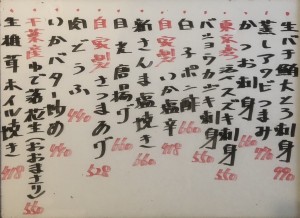 生バチ鮪大とろ刺身 990
蒸しアワビつまみ 990
かつお刺身 660
東京湾スズキ刺身 660
バショウカジキ刺身 660
白子ポン酢 660
自家製いか塩辛 418
新さんま塩焼き 660
目光唐揚げ 660
自家製さつまあげ 528
肉どうふ 440
いかバター炒め
千葉産ゆで落花生(おおまさり) 440
生椎茸ホイル焼き 418